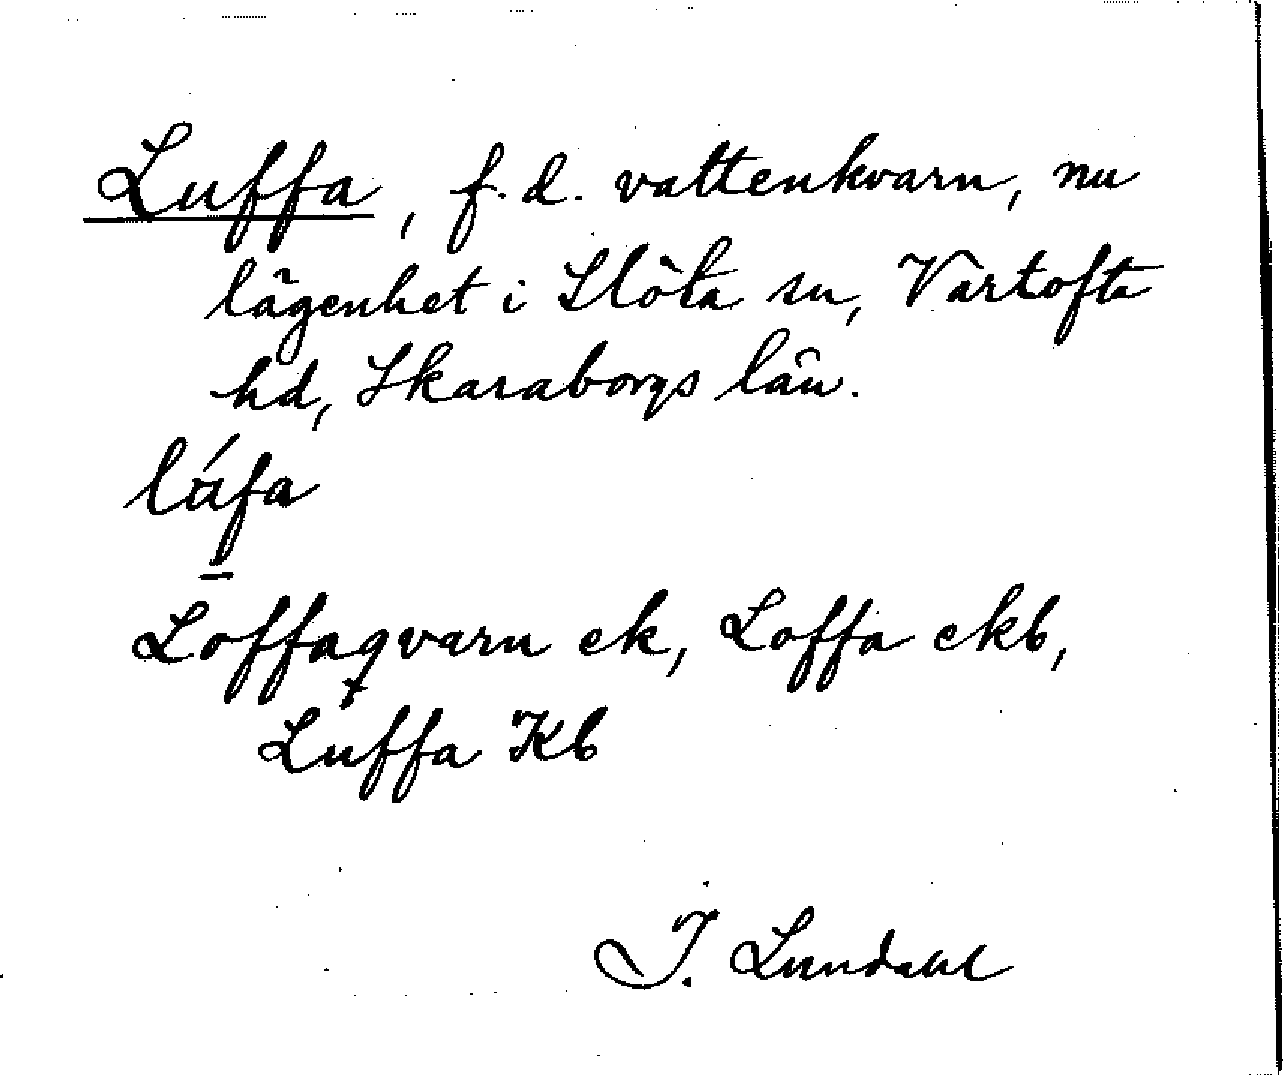 Luffa, f. d. vattenkvarn, nu
lägenhet i Slöta sn, Vartofta
hd, Skaraborgs län.
lu̍fa
Loffaqvarn ek, Loffa ekb,
Luffa Kb
I. Lundahl